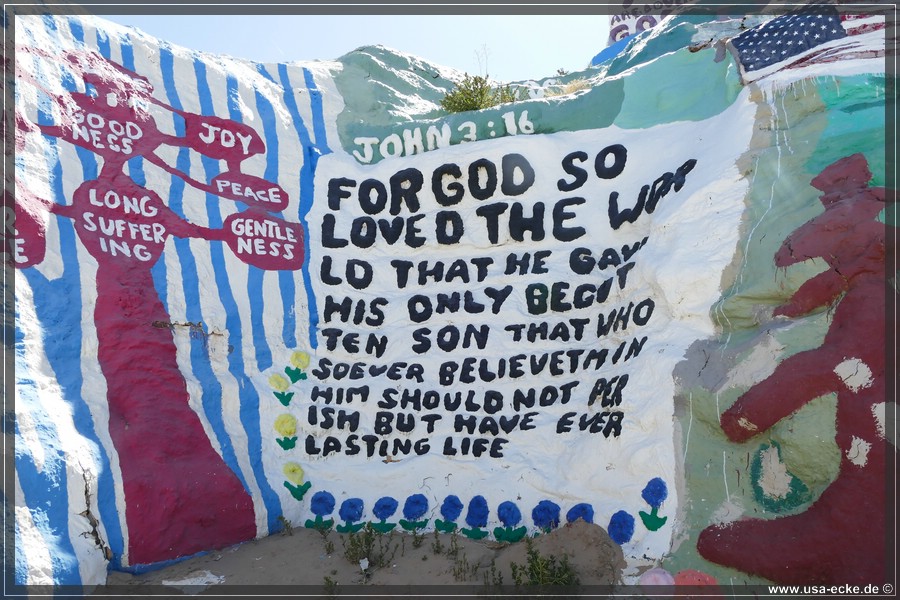 GOOD
NESS
JOY
PEACE
LONG
SUFFER
ING
GENTLE
NESS
JOHN 3:16
FOR GOD SO
LOVED THE WOR
LD THAT HE GAVE
HIS ONLY BEGOT
TEN SON THAT WHO
SOEVER BELIEVETH IN
HIM SHOULD NOT PER
ISH BUT HAVE EVER
LASTING LIFE
www.usa-ecke.de ©